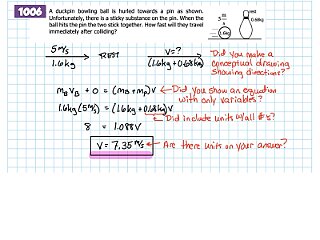 1006
A duckpin bowling ball is hurled towards a pin as shown.
Unfortunately, there is a sticky substance on the pin. When the
ball hits the pin the two stick together. How fast will they travel
immediately after colliding?
5 m/s
1.6kg
REST
V=?
(1.6kg+0.68kg)
Did you make a
conceptual drawing
showing directions?
mBVB + 0 = (mB+mP)V
Did you show an equation
with only variables?
1.6kg(5m/s) = (1.6kg+0.68kg)V
Did include units w/all #'s?
8 = 1.088V
V = 7.35 m/s
Are there units on your answer?